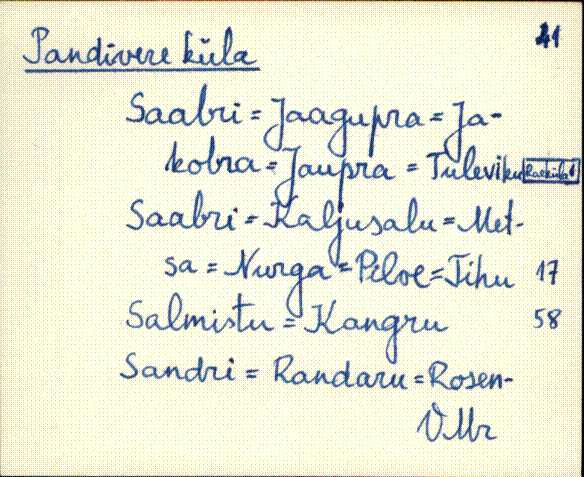 Pandivere küla 41
Saabri = Jaagupra = Ja-
kobra = Jaupra = Tuleviku
Saabri = Kaljusalu = Met-
sa = Nurga = Piloe = Tihu 17
Salmistu = Kangru 58
Sandri = Randaru = Rosen-
VMr